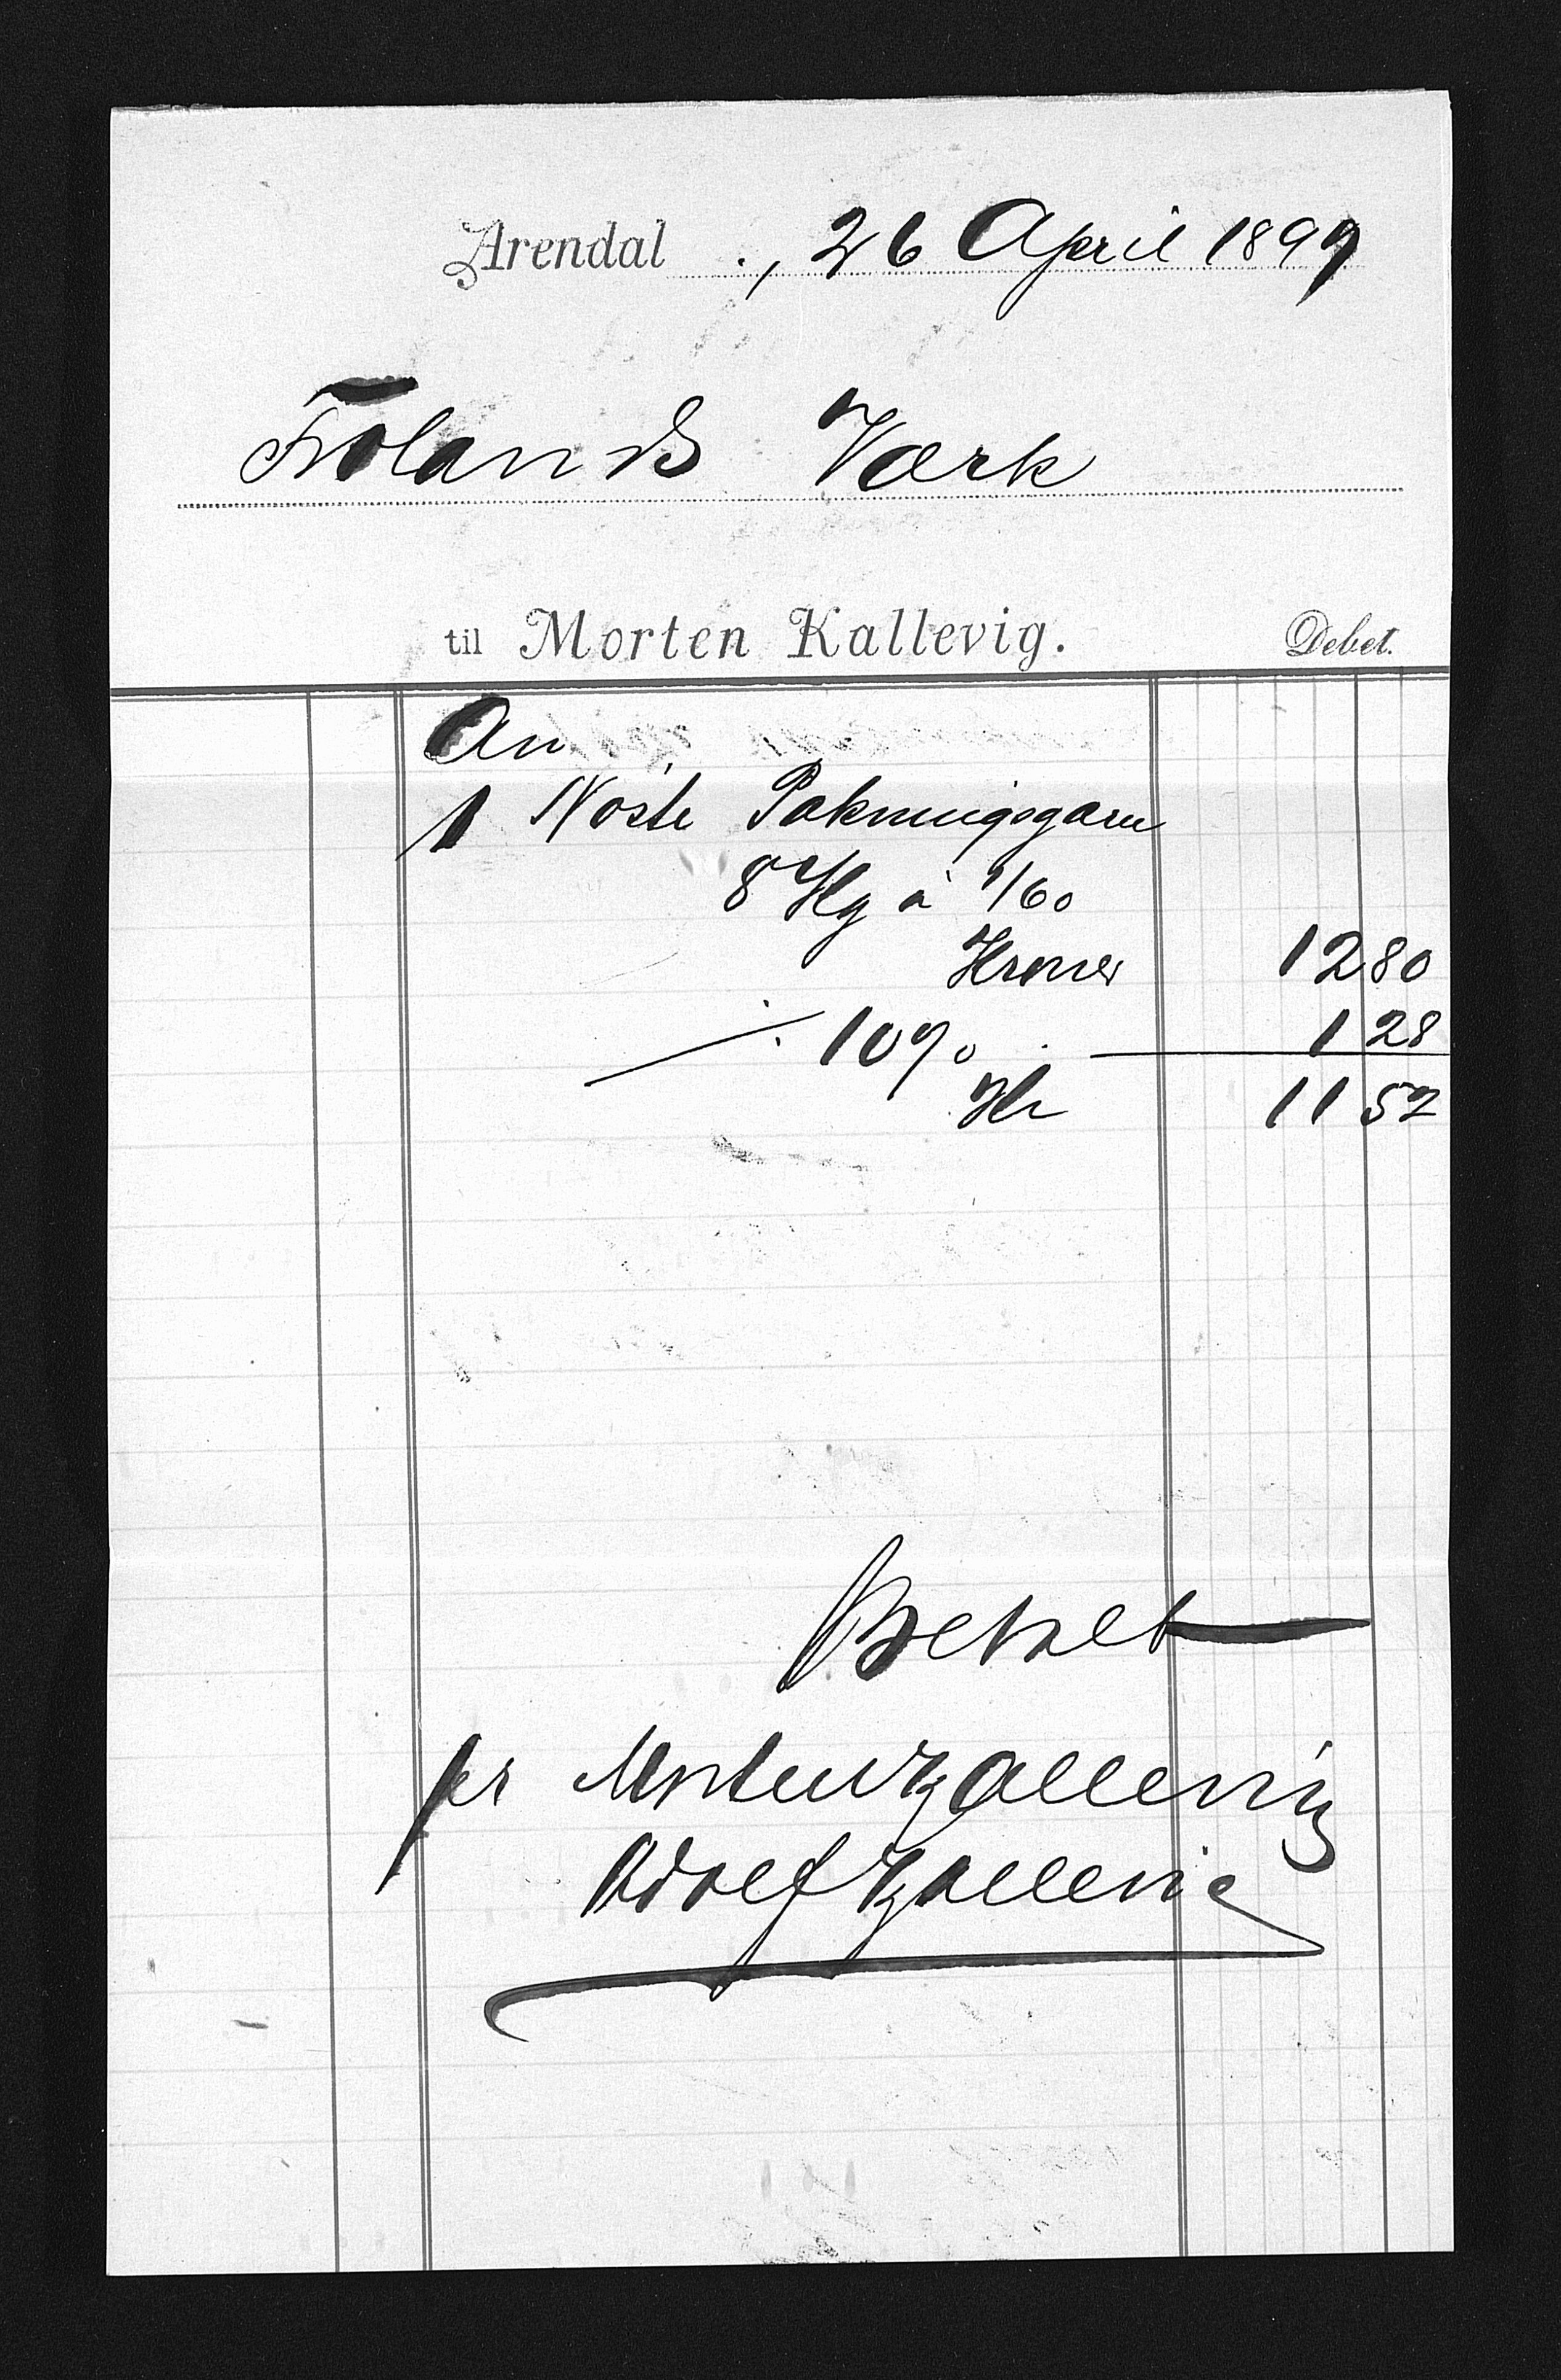 Arendal ., 26 April 1899
Frolands Værk
til Morten Kallevig. Debet.
An
1 Nøste Pakningsgarn
8 Kg à 1/60
Kroner 12 80
⁒ 10% 1 28
Kr 11 52
Betalt
pr Morten Kallevig
Adolf Kallevig